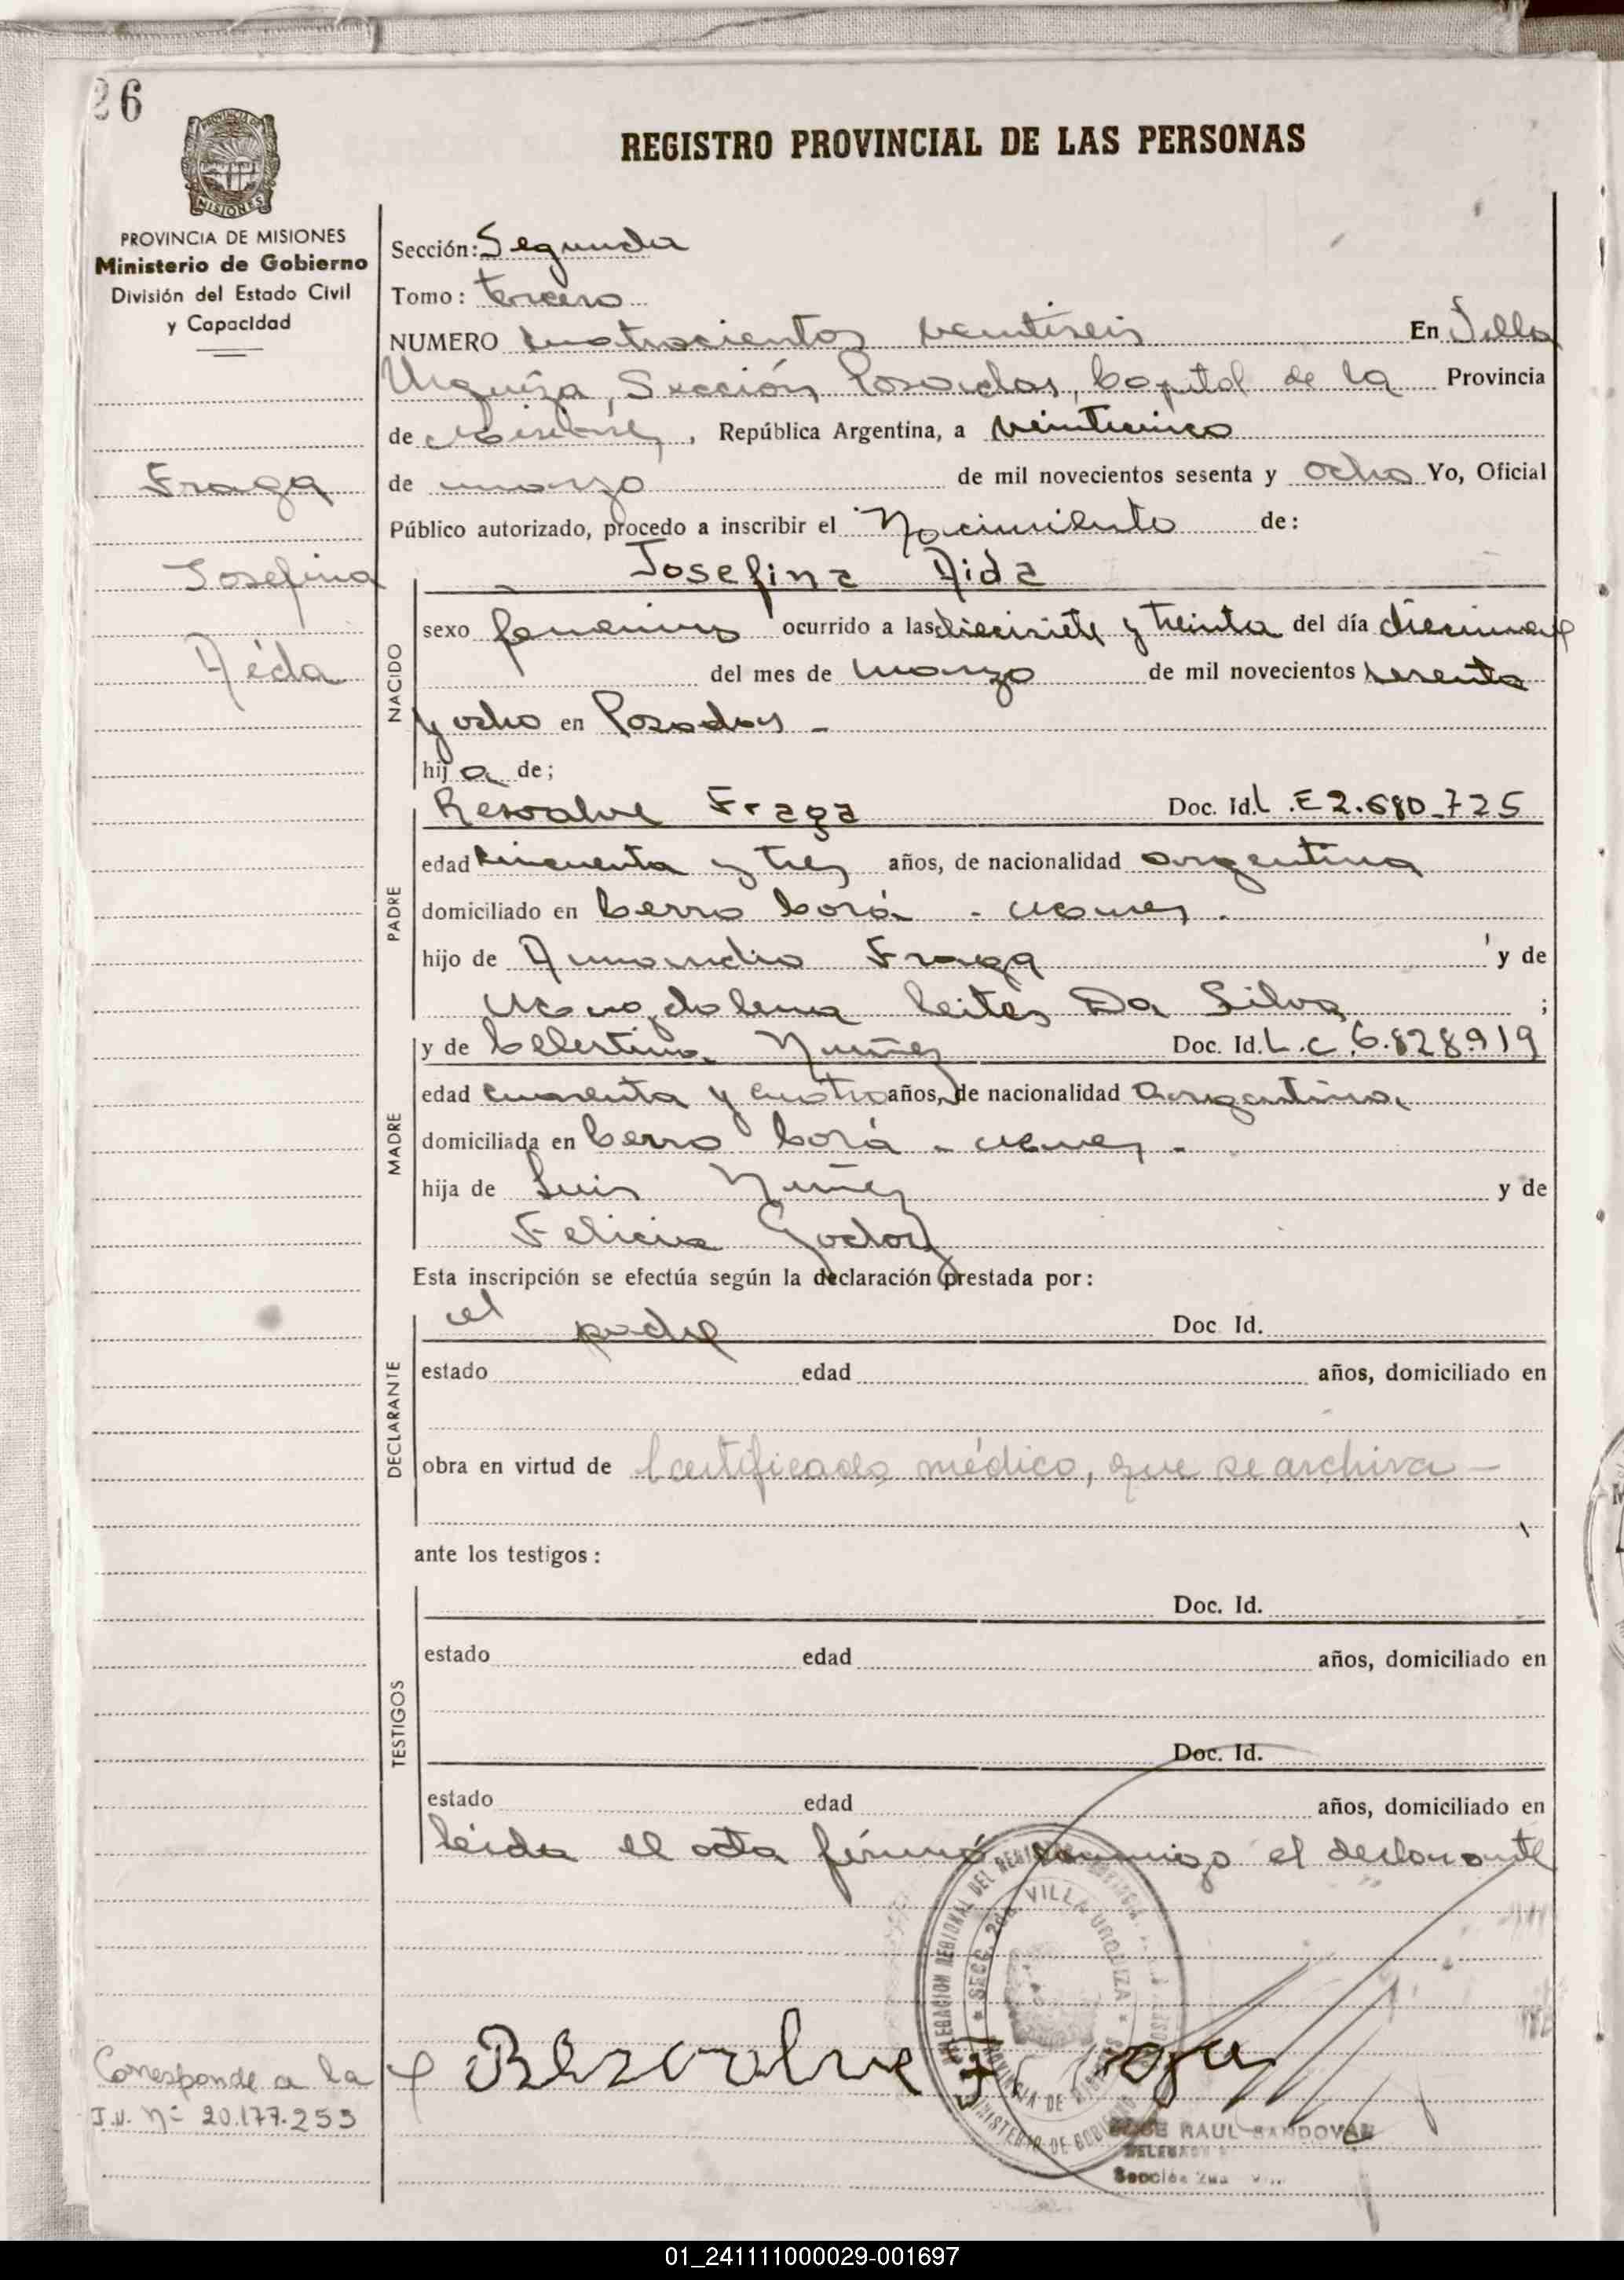 26
REGISTRO PROVINCIAL DE LAS PERSONAS
PROVINCIA DE MISIONES
Ministerio de Gobierno
División del Estado Civil
y Capacidad
Fraga
Josefina
Aída
Sección: Segunda
Tomo: tercero
NUMERO cuatrocientos veintiseis En Villa
Urquiza, Sección Posadas, Capital de la Provincia
de Misiones, República Argentina, a veinticinco
de marzo de mil novecientos sesenta y ocho Yo, Oficial
Público autorizado, procedo a inscribir el Nacimiento de:
Josefina Aida
NACIDO
sexo femenino ocurrido a las diecisiete y treinta del día diecinueve
del mes de marzo de mil novecientos sesenta
y ocho en Posadas -
hija de;
PADRE
Resalve Fraga Doc. Id. L.E 2.680.725
edad cincuenta y tres años, de nacionalidad argentina
domiciliado en Cerro Corá - Mnes.
hijo de Amandio Fraga y de
Magdalena Leites Da Silva ;
MADRE
y de Celestina Nuñez Doc. Id. L.C. 6.828.919
edad cuarenta y cuatro años, de nacionalidad argentina
domiciliada en Cerro Corá - Mnes -
hija de Luis Nuñez y de
Felicia Godoy
Esta inscripción se efectúa según la declaración prestada por:
DECLARANTE
el padre Doc Id.
estado edad años, domiciliado en
obra en virtud de Certificado médico, que se archiva -
ante los testigos:
TESTIGOS
Doc. Id.
estado edad años, domiciliado en
Doc. Id.
estado edad años, domiciliado en
leida el acta firmó conmigo el declarante
DELEGACION REGIONAL DEL REGISTRO
* SECC. 2da. VILLA URQUIZA *
MINISTERIO DE GOBIERNO
Fraga
Corresponde a la
I.N. Nº 20.177.253
JOSE RAUL SANDOVAL
Sección 2da
01_241111000029-001697